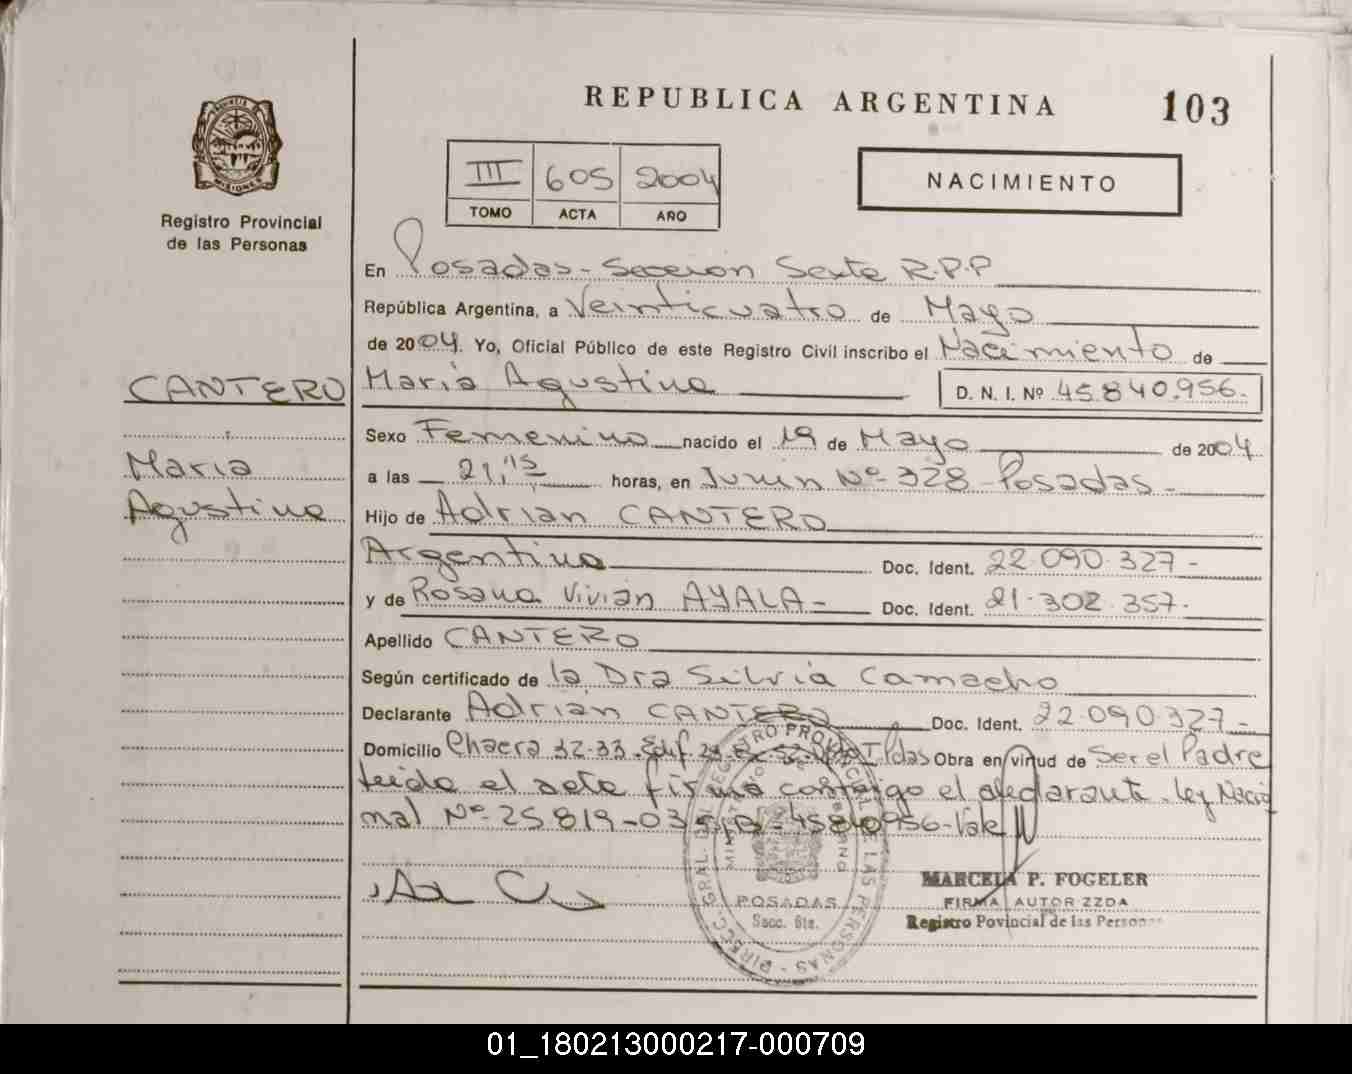 REPUBLICA ARGENTINA
103
MISIONES
Registro Provincial
de las Personas
III 605 2004
TOMO ACTA AÑO
NACIMIENTO
En Posadas - Seccion Sexta R.P.P
República Argentina, a Veinticuatro de Mayo
de 2004. Yo, Oficial Público de este Registro Civil inscribo el Nacimiento de
CANTERO
Maria Agustina
Maria Agustina D. N. I. Nº 45.840.956.
Sexo Femenino nacido el 19 de Mayo de 2004
a las 21,15 horas, en Junin Nº 328 Posadas -
Hijo de Adrian CANTERO
Argentina Doc. Ident. 22.090.327 -
y de Rosana Vivian AYALA - Doc. Ident. 21.302.357.
Apellido CANTERO
Según certificado de la Dra Silvia Camacho
Declarante Adrian CANTERO Doc. Ident. 22.090.327 -
Domicilio Chacra 32-33 Edif. Obra en virtud de Ser el Padre
leida el acta firma conmigo el declarante. Ley Nacio
nal Nº 25819-03 45840956-Vale
MARCELA P. FOGELER
FIRMA AUTORIZZDA
Registro Povincial de las Personas
DIRECC. GRAL. DEL REGISTRO PROVINCIAL DE LAS PERSONAS -
POSADAS
Secc. 6ta.
01_180213000217-000709